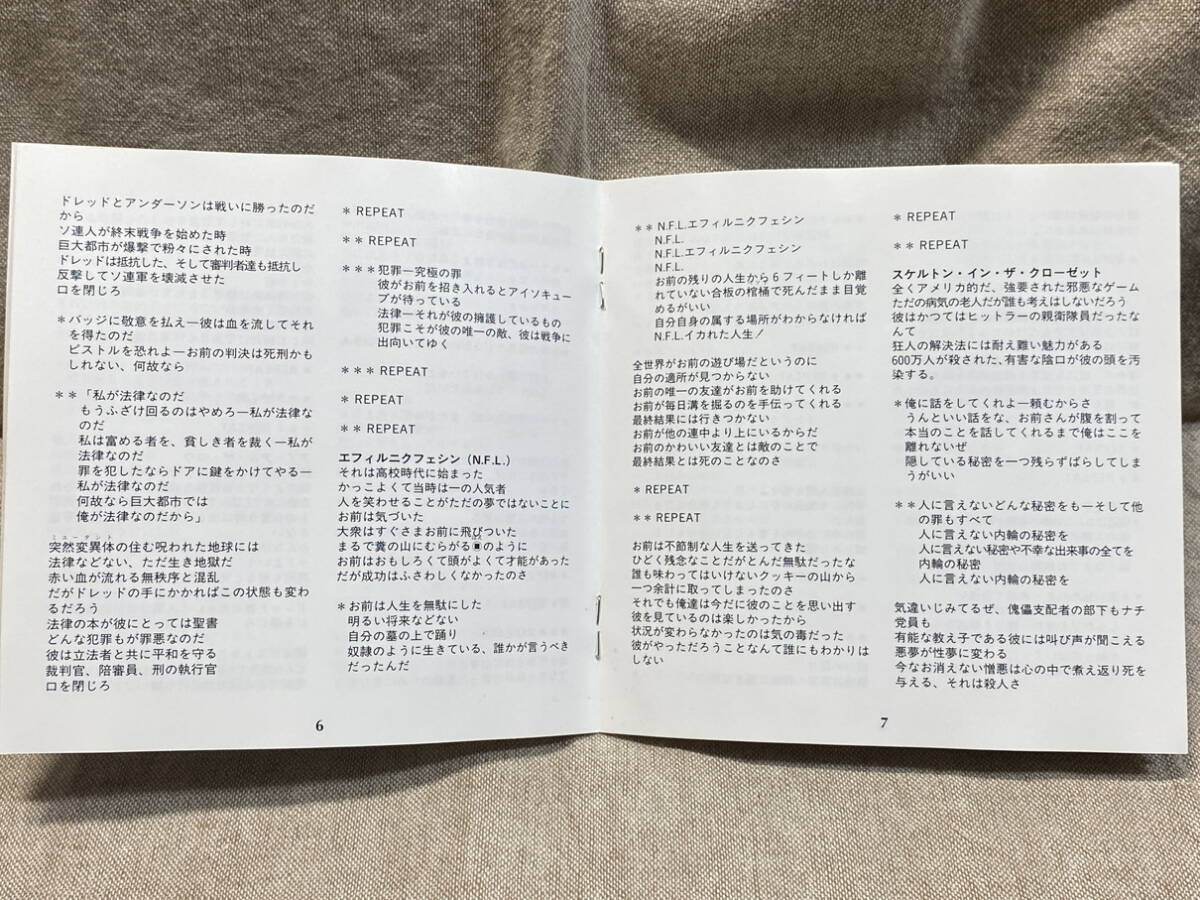 ドレッドとアンダーソンは戦いに勝ったのだ
から
ソ連人が終末戦争を始めた時
巨大都市が爆撃で粉々にされた時
ドレッドは抵抗した、そして審判者達も抵抗し
反撃してソ連軍を壊滅させた
口を閉じろ
＊バッジに敬意を払え―彼は血を流してそれ
を得たのだ
ピストルを恐れよ―お前の判決は死刑かも
しれない、何故なら
＊＊「私が法律なのだ
もうふざけ回るのはやめろ―私が法律な
のだ
私は富める者を、貧しき者を裁く―私が
法律なのだ
罪を犯したならドアに鍵をかけてやる―
私が法律なのだ
何故なら巨大都市では
俺が法律なのだから」
ミュータント
突然変異体の住む呪われた地球には
法律などない、ただ生き地獄だ
赤い血が流れる無秩序と混乱
だがドレッドの手にかかればこの状態も変わ
るだろう
法律の本が彼にとっては聖書
どんな犯罪もが罪悪なのだ
彼は立法者と共に平和を守る
裁判官、陪審員、刑の執行官
口を閉じろ
＊REPEAT
＊＊REPEAT
＊＊＊犯罪―究極の罪
彼がお前を招き入れるとアイソキュー
ブが待っている
法律―それが彼の擁護しているもの
犯罪こそが彼の唯一の敵、彼は戦争に
出向いてゆく
＊＊＊REPEAT
＊REPEAT
＊＊REPEAT
エフィルニクフェシン（N.F.L.）
それは高校時代に始まった
かっこよくて当時は一の人気者
人を笑わせることがただの夢ではないことに
お前は気づいた
大衆はすぐさまお前に飛びついた
まるで糞の山にむらがる■のように
お前はおもしろくて頭がよくて才能があった
だが成功はふさわしくなかったのさ
＊お前は人生を無駄にした
明るい将来などない
自分の墓の上で踊り
奴隷のように生きている、誰かが言うべき
だったんだ
6
＊＊N.F.L.エフィルニクフェシン
N.F.L.
N.F.L.エフィルニクフェシン
N.F.L.
お前の残りの人生から６フィートしか離
れていない合板の棺桶で死んだまま目覚
めるがいい
自分自身の属する場所がわからなければ
N.F.L.イカれた人生！
全世界がお前の遊び場だというのに
自分の適所が見つからない
お前の唯一の友達がお前を助けてくれる
お前が毎日溝を掘るのを手伝ってくれる
最終結果には行きつかない
お前が他の連中より上にいるからだ
お前のかわいい友達とは敵のことで
最終結果とは死のことなのさ
＊REPEAT
＊＊REPEAT
お前は不節制な人生を送ってきた
ひどく残念なことだがとんだ無駄だったな
誰も味わってはいけないクッキーの山から
一つ余計に取ってしまったのさ
それでも俺達は今だに彼のことを思い出す
彼を見ているのは楽しかったから
状況が変わらなかったのは気の毒だった
彼がやっただろうことなんて誰にもわかりは
しない
＊REPEAT
＊＊REPEAT
スケルトン・イン・ザ・クローゼット
全くアメリカ的だ、強要された邪悪なゲーム
ただの病気の老人だが誰も考えはしないだろう
彼はかつてはヒットラーの親衛隊員だったな
んて
狂人の解決法には耐え難い魅力がある
600万人が殺された、有害な陰口が彼の頭を汚
染する。
＊俺に話をしてくれよ―頼むからさ
うんといい話をな、お前さんが腹を割って
本当のことを話してくれるまで俺はここを
離れないぜ
隠している秘密を一つ残らずばらしてしま
うがいい
＊＊人に言えないどんな秘密をも―そして他
の罪もすべて
人に言えない内輪の秘密を
人に言えない秘密や不幸な出来事の全てを
内輪の秘密
人に言えない内輪の秘密を
気違いじみてるぜ、傀儡支配者の部下もナチ
党員も
有能な教え子である彼には叫び声が聞こえる
悪夢が性夢に変わる
今なお消えない憎悪は心の中で煮え返り死を
与える、それは殺人さ
7